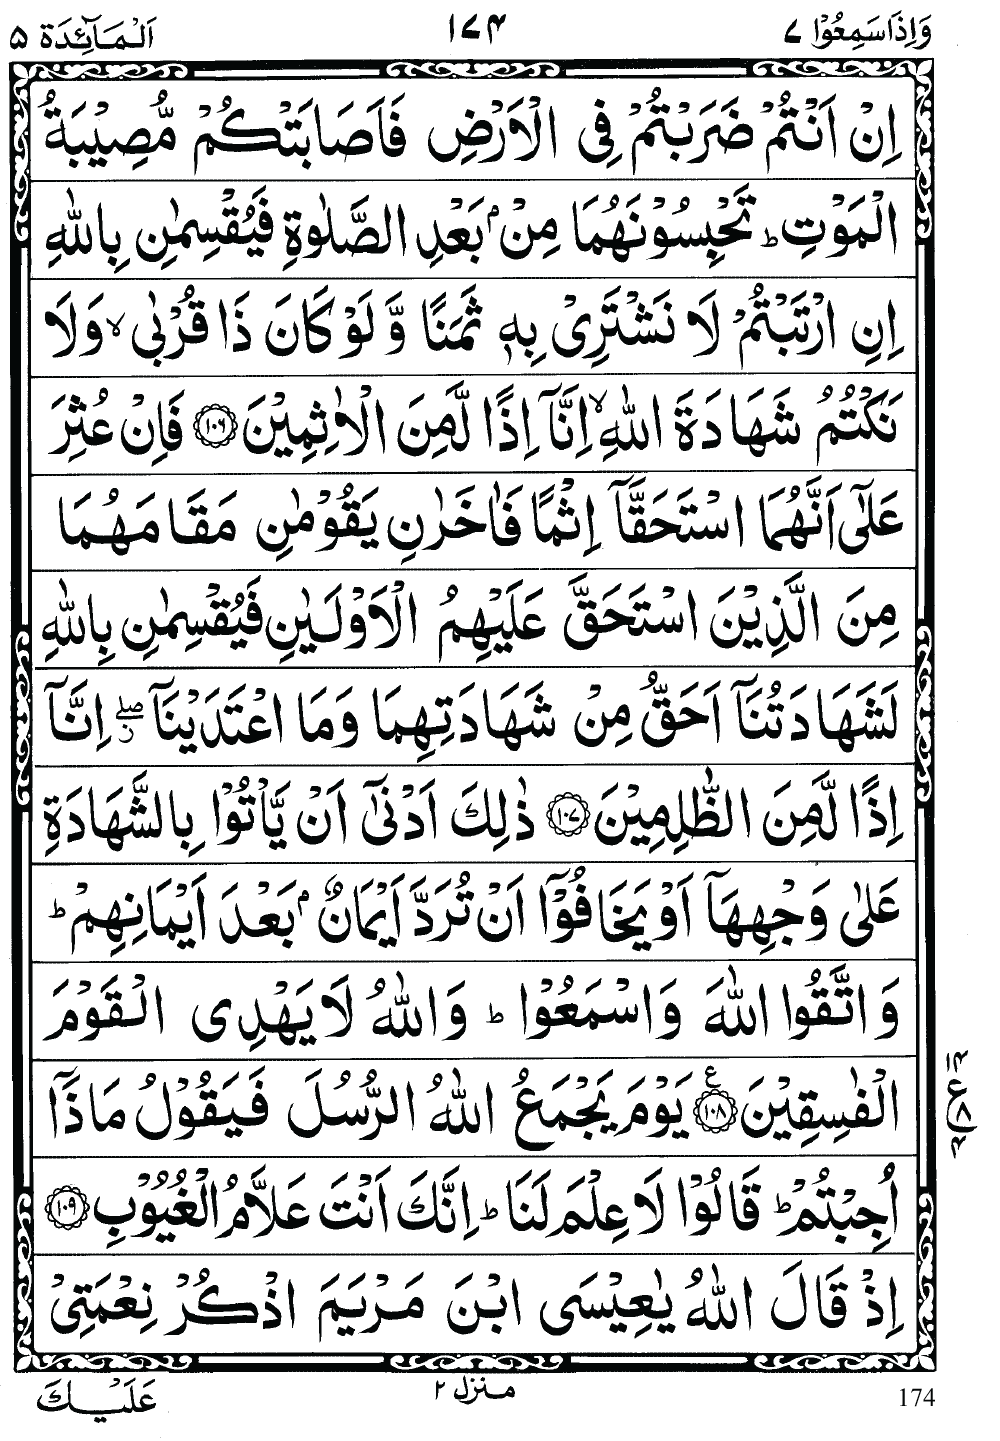 وَاِذَا سَمِعُوْا ٧ ١٧۴ اَلْمَآئِدَة ۵
اِنْ اَنْتُمْ ضَرَبْتُمْ فِی الْاَرْضِ فَاَصَابَتْكُمْ مُّصِیْبَةُ
الْمَوْتِ ؕ تَحْبِسُوْنَهُمَا مِنْۢ بَعْدِ الصَّلٰوةِ فَیُقْسِمٰنِ بِاللّٰهِ
اِنِ ارْتَبْتُمْ لَا نَشْتَرِیْ بِهٖ ثَمَنًا وَّ لَوْ كَانَ ذَا قُرْبٰی ۙ وَلَا
نَكْتُمُ شَهَادَةَ اللّٰهِ ۙ اِنَّاۤ اِذًا لَّمِنَ الْاٰثِمِیْنَ ﴿١٠٦﴾ فَاِنْ عُثِرَ
عَلٰۤی اَنَّهُمَا اسْتَحَقَّاۤ اِثْمًا فَاٰخَرٰنِ یَقُوْمٰنِ مَقَامَهُمَا
مِنَ الَّذِیْنَ اسْتَحَقَّ عَلَیْهِمُ الْاَوْلَیٰنِ فَیُقْسِمٰنِ بِاللّٰهِ
لَشَهَادَتُنَاۤ اَحَقُّ مِنْ شَهَادَتِهِمَا وَمَا اعْتَدَیْنَاۤ ۖ اِنَّاۤ
اِذًا لَّمِنَ الظّٰلِمِیْنَ ﴿١٠٧﴾ ذٰلِكَ اَدْنٰۤی اَنْ یَّاْتُوْا بِالشَّهَادَةِ
عَلٰی وَجْهِهَاۤ اَوْ یَخَافُوْۤا اَنْ تُرَدَّ اَیْمَانٌۢ بَعْدَ اَیْمَانِهِمْ ؕ
وَاتَّقُوا اللّٰهَ وَاسْمَعُوْا ؕ وَاللّٰهُ لَا یَهْدِی الْقَوْمَ
الْفٰسِقِیْنَ ﴿١٠٨﴾ ع یَوْمَ یَجْمَعُ اللّٰهُ الرُّسُلَ فَیَقُوْلُ مَاذَاۤ
اُجِبْتُمْ ؕ قَالُوْا لَا عِلْمَ لَنَا ؕ اِنَّكَ اَنْتَ عَلَّامُ الْغُیُوْبِ ﴿١٠٩﴾
اِذْ قَالَ اللّٰهُ یٰعِیْسَی ابْنَ مَرْیَمَ اذْكُرْ نِعْمَتِیْ
عَلَیْكَ منزل ٢ 174